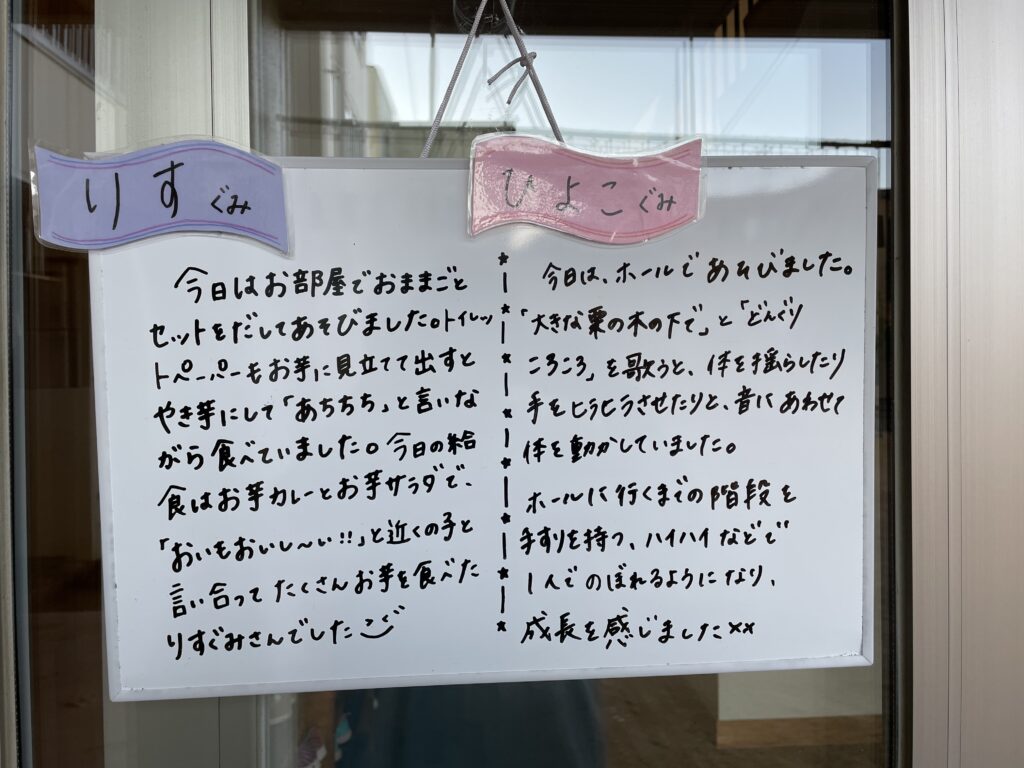 りす ぐみ
今日はお部屋でおままごと
セットをだしてあそびました。トイレッ
トペーパーもお芋に見立てて出すと
やき芋にして「あちちち」と言いな
がら食べていました。今日の給
食はお芋カレーとお芋サラダで、
「おいもおいし〜い!!」と近くの子と
言い合ってたくさんお芋を食べた
りすぐみさんでした
ひよこ ぐみ
今日は、ホールであそびました。
「大きな栗の木の下で」と「どんぐり
ころころ」を歌うと、体を揺らしたり
手をヒラヒラさせたりと、音にあわせて
体を動かしていました。
ホールに行くまでの階段を
手すりを持つ、ハイハイなどで
1人でのぼれるようになり、
成長を感じました××